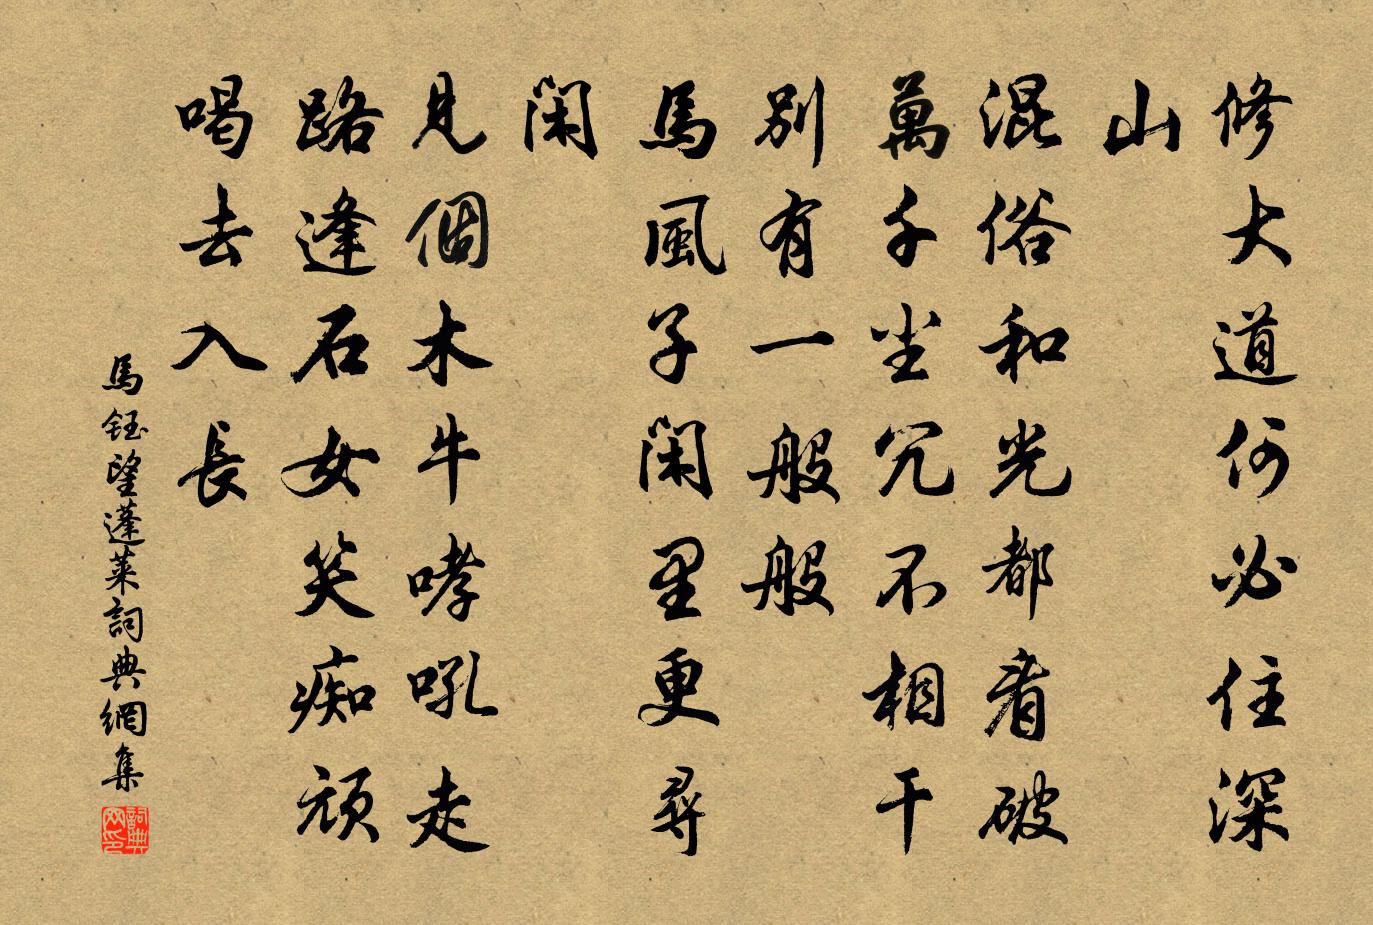 修大道何必住深
山
混俗和光都看破
萬千坐冗不相干
別有一般般
馬風子閑里更尋
閑
見個木牛哮吼走
路逢石女笑痴頑
喝去入長
馬鈺望蓬萊詞典網集
詞典
网印